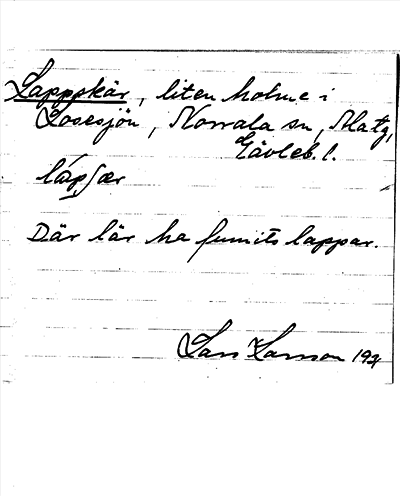 Lappskär, liten holme i
Losesjön, Norrala sn,
Gävleb. l.
Där lär ha funnits lappar.
Lars Larsson 192